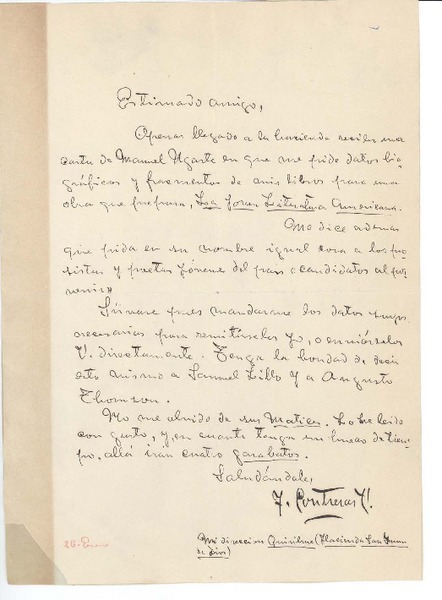 Estimado amigo,
Apenas llegado a la hacienda recibo una
carta de Manuel Ugarte en que me pide datos bio
gráficos y fragmentos de mis libros para una
obra que prepara, La Joven Literatura Americana.
Me dice ademas
que pida en su nombre igual cosa a los pro
sistas y poetas jóvenes del pais candidatos al por
venir.
Sírvase pues mandarme los datos
necesarios para remitírselos yo, o enviárselos
V. directamente. Tenga la bondad de decir
esto mismo a Samuel Lillo y a Augusto
Thomson.
No me olvido de sus Matices. Lo he leido
con gusto, y, en cuanto tenga un línea de tiem
po, allá irán cuatro garabatos.
Saludándole,
F. Contreras V.
Mi direccion Quirihue (Hacienda San Juan
de Dios)
28-Enero